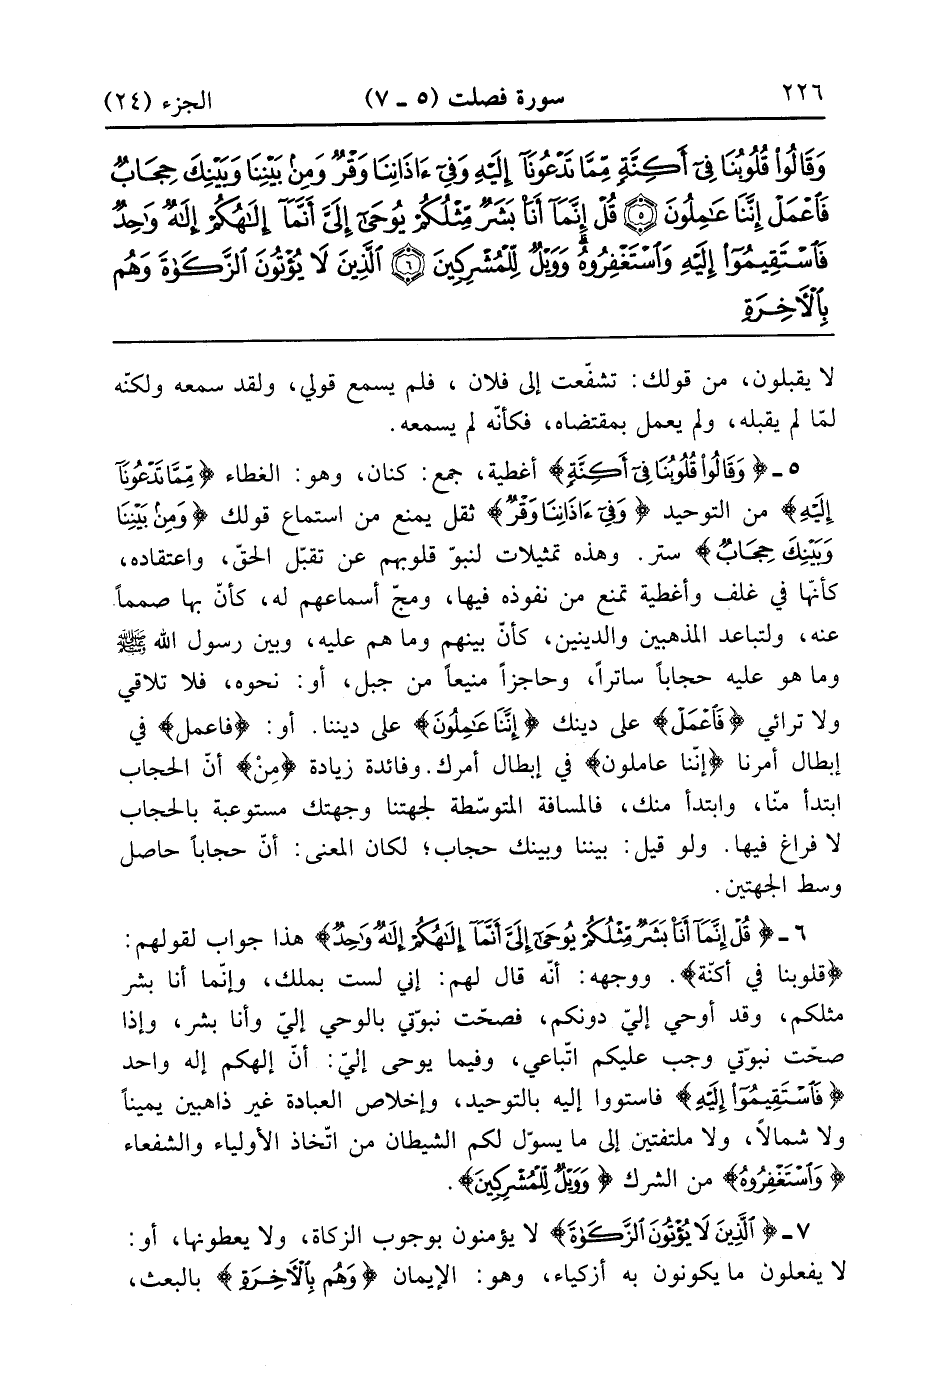 ٢٢٦ سورة فصلت (٥ - ٧) الجزء (٢٤)
وَقَالُواْ قُلُوبُنَا فِىٓ أَكِنَّةٍ مِّمَّا تَدْعُونَآ إِلَيْهِ وَفِىٓ ءَاذَانِنَا وَقْرٌ وَمِنۢ بَيْنِنَا وَبَيْنِكَ حِجَابٌ
فَٱعْمَلْ إِنَّنَا عَٰمِلُونَ ۝٥ قُلْ إِنَّمَآ أَنَا۠ بَشَرٌ مِّثْلُكُمْ يُوحَىٰٓ إِلَىَّ أَنَّمَآ إِلَٰهُكُمْ إِلَٰهٌ وَٰحِدٌ
فَٱسْتَقِيمُوٓاْ إِلَيْهِ وَٱسْتَغْفِرُوهُ ۗ وَوَيْلٌ لِّلْمُشْرِكِينَ ۝٦ ٱلَّذِينَ لَا يُؤْتُونَ ٱلزَّكَوٰةَ وَهُم
بِٱلْأَخِرَةِ
لا يقبلون، من قولك: تشفّعت إلى فلان ، فلم يسمع قولي، ولقد سمعه ولكنّه
لمّا لم يقبله، ولم يعمل بمقتضاه، فكأنّه لم يسمعه.
٥ - ﴿وَقَالُواْ قُلُوبُنَا فِىٓ أَكِنَّةٍ﴾ أغطية، جمع: كنان، وهو: الغطاء ﴿مِّمَّا تَدْعُونَآ
إِلَيْهِ﴾ من التوحيد ﴿وَفِىٓ ءَاذَانِنَا وَقْرٌ﴾ ثقل يمنع من استماع قولك ﴿وَمِنۢ بَيْنِنَا
وَبَيْنِكَ حِجَابٌ﴾ ستر. وهذه تمثيلات لنبوّ قلوبهم عن تقبّل الحقّ، واعتقاده،
كأنّها في غلف وأغطية تمنع من نفوذه فيها، ومجّ أسماعهم له، كأنّ بها صمماً
عنه، ولتباعد المذهبين والدينين، كأنّ بينهم وما هم عليه، وبين رسول الله ﷺ
وما هو عليه حجاباً ساتراً، وحاجزاً منيعاً من جبل، أو: نحوه، فلا تلاقي
ولا ترائي ﴿فَٱعْمَلْ﴾ على دينك ﴿إِنَّنَا عَٰمِلُونَ﴾ على ديننا. أو: ﴿فاعمل﴾ في
إبطال أمرنا ﴿إنّنا عاملون﴾ في إبطال أمرك. وفائدة زيادة ﴿مِنْ﴾ أنّ الحجاب
ابتدأ منّا، وابتدأ منك، فالمسافة المتوسّطة لجهتنا وجهتك مستوعبة بالحجاب
لا فراغ فيها. ولو قيل: بيننا وبينك حجاب؛ لكان المعنى: أنّ حجاباً حاصل
وسط الجهتين.
٦ - ﴿قُلْ إِنَّمَآ أَنَا۠ بَشَرٌ مِّثْلُكُمْ يُوحَىٰٓ إِلَىَّ أَنَّمَآ إِلَٰهُكُمْ إِلَٰهٌ وَٰحِدٌ﴾ هذا جواب لقولهم:
﴿قلوبنا في أكنّة﴾. ووجهه: أنّه قال لهم: إني لست بملك، وإنّما أنا بشر
مثلكم، وقد أوحي إليّ دونكم، فصحّت نبوّتي بالوحي إليّ وأنا بشر، وإذا
صحّت نبوّتي وجب عليكم اتّباعي، وفيما يوحى إليّ: أنّ إلهكم إله واحد
﴿فَٱسْتَقِيمُوٓاْ إِلَيْهِ﴾ فاستووا إليه بالتوحيد، وإخلاص العبادة غير ذاهبين يميناً
ولا شمالاً، ولا ملتفتين إلى ما يسوّل لكم الشيطان من اتّخاذ الأولياء والشفعاء
﴿وَٱسْتَغْفِرُوهُ﴾ من الشرك ﴿وَوَيْلٌ لِّلْمُشْرِكِينَ﴾.
٧ - ﴿ٱلَّذِينَ لَا يُؤْتُونَ ٱلزَّكَوٰةَ﴾ لا يؤمنون بوجوب الزكاة، ولا يعطونها، أو:
لا يفعلون ما يكونون به أزكياء، وهو: الإيمان ﴿وَهُم بِٱلْأَخِرَةِ﴾ بالبعث،